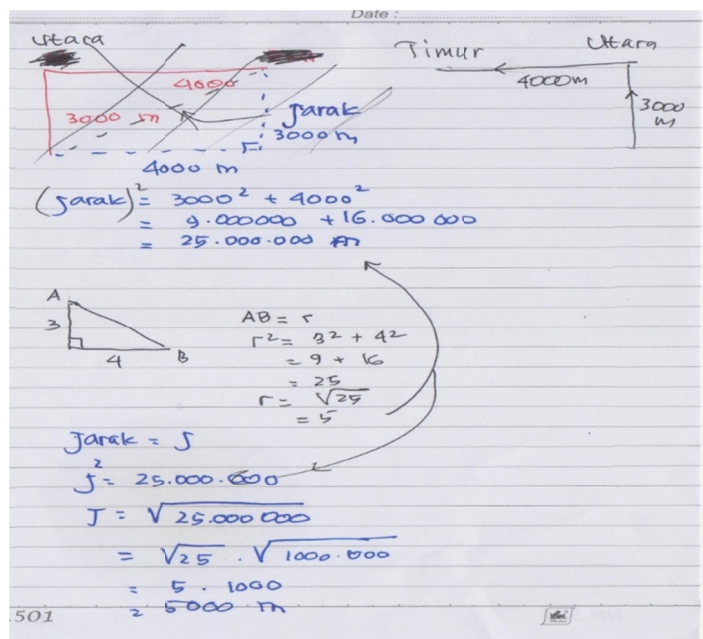 Date :
Utara
4000
3000 m
Jarak
3000 m
4000 m
Timur
Utara
4000m
3000
m
(Jarak)² = 3000² + 4000²
= 9.000000 + 16.000 000
= 25.000.000 m
A
3
4
B
AB = r
r² = 3² + 4²
= 9 + 16
= 25
r = √25
= 5
Jarak = J
J² = 25.000.000
J = √25.000 000
= √25 . √1000.000
= 5 . 1000
= 5000 m
.501